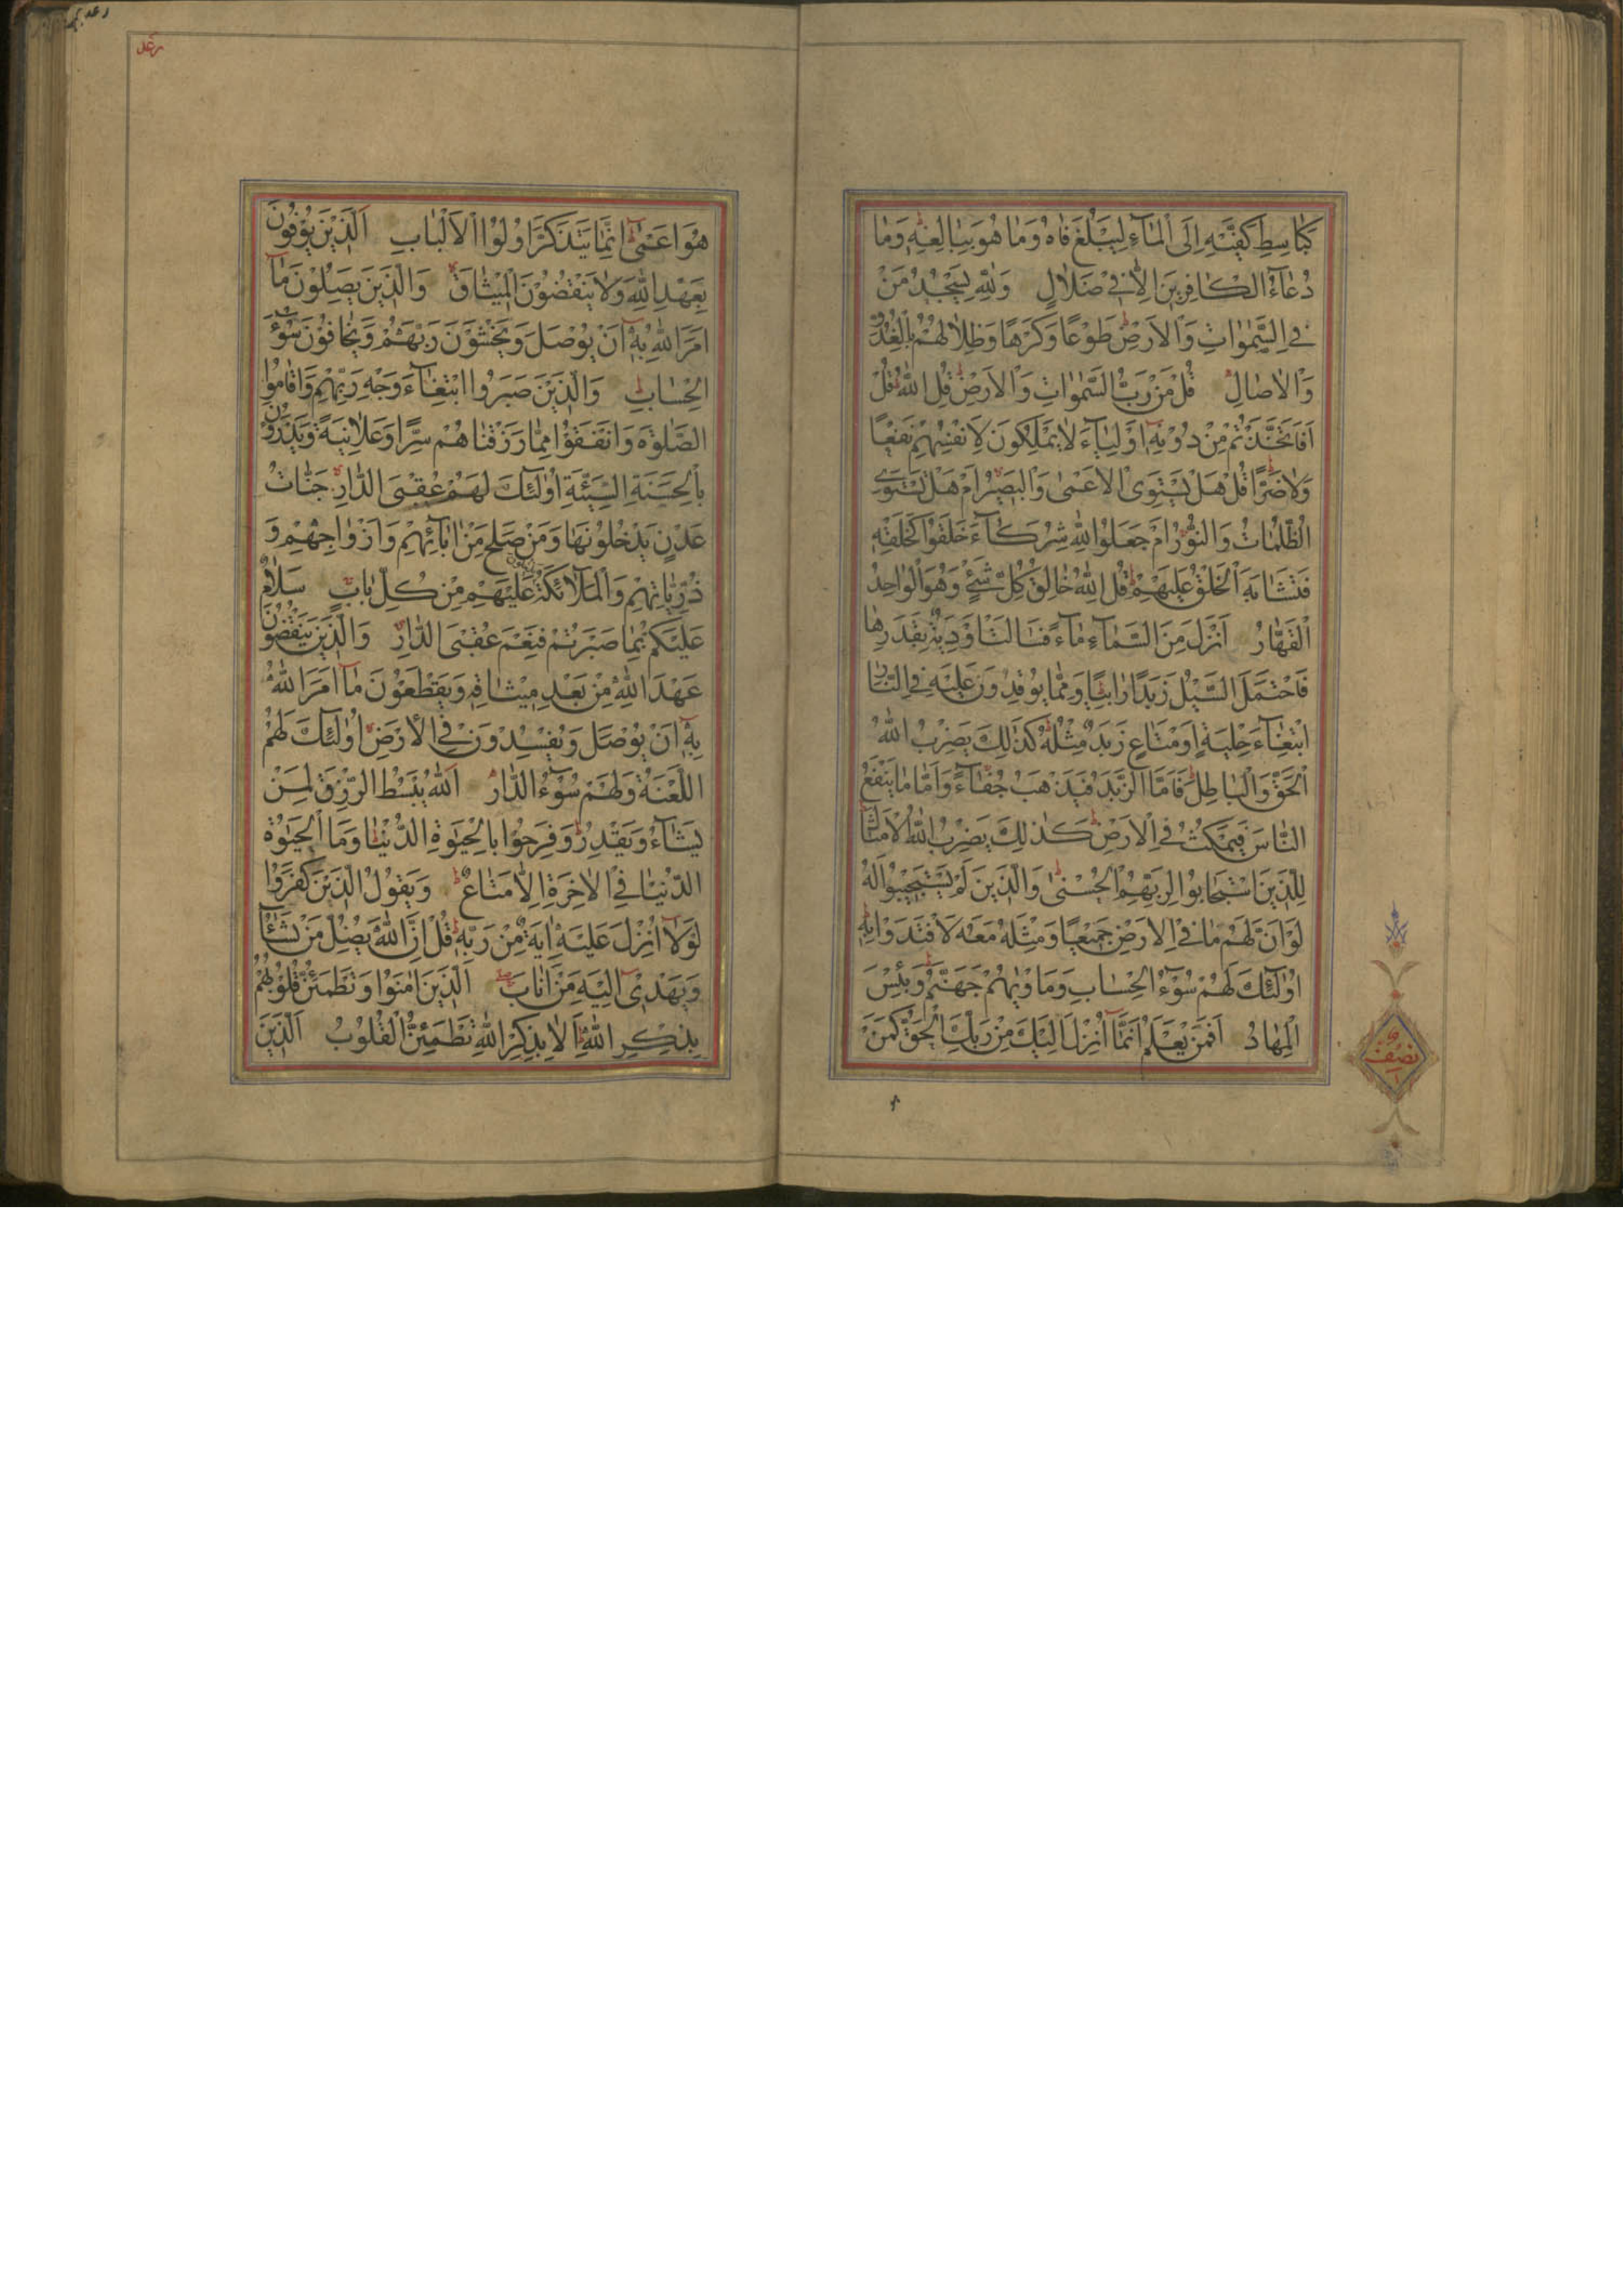 كَبَاسِطِ كَفَّيْهِ اِلَى الْمَآءِ لِيَبْلُغَ فَاهُ وَمَا هُوَ بِبَالِغِهٖ وَمَا
دُعَآءُ الْكَافِرِينَ اِلَّا فِي ضَلَالٍ وَلِلّٰهِ يَسْجُدُ مَنْ
فِي السَّمٰوَاتِ وَالْاَرْضِ طَوْعًا وَكَرْهًا وَظِلَالُهُمْ بِالْغُدُوِّ
وَالْاٰصَالِ قُلْ مَنْ رَبُّ السَّمٰوَاتِ وَالْاَرْضِ قُلِ اللّٰهُ قُلْ
اَفَاتَّخَذْتُمْ مِنْ دُوْنِهٖ اَوْلِيَآءَ لَا يَمْلِكُونَ لِاَنْفُسِهِمْ نَفْعًا
وَلَا ضَرًّا قُلْ هَلْ يَسْتَوِي الْاَعْمٰى وَالْبَصِيْرُ اَمْ هَلْ تَسْتَوِي
الظُّلُمَاتُ وَالنُّوْرُ اَمْ جَعَلُوْا لِلّٰهِ شُرَكَآءَ خَلَقُوْا كَخَلْقِهٖ
فَتَشَابَهَ الْخَلْقُ عَلَيْهِمْ قُلِ اللّٰهُ خَالِقُ كُلِّ شَيْءٍ وَهُوَ الْوَاحِدُ
الْقَهَّارُ اَنْزَلَ مِنَ السَّمَآءِ مَآءً فَسَالَتْ اَوْدِيَةٌ بِقَدَرِهَا
فَاحْتَمَلَ السَّيْلُ زَبَدًا رَابِيًا وَمِمَّا يُوْقِدُوْنَ عَلَيْهِ فِي النَّارِ
ابْتِغَآءَ حِلْيَةٍ اَوْ مَتَاعٍ زَبَدٌ مِثْلُهٗ كَذٰلِكَ يَضْرِبُ اللّٰهُ
الْحَقَّ وَالْبَاطِلَ فَاَمَّا الزَّبَدُ فَيَذْهَبُ جُفَآءً وَاَمَّا مَا يَنْفَعُ
النَّاسَ فَيَمْكُثُ فِي الْاَرْضِ كَذٰلِكَ يَضْرِبُ اللّٰهُ الْاَمْثَالَ
لِلَّذِينَ اسْتَجَابُوا لِرَبِّهِمُ الْحُسْنٰى وَالَّذِينَ لَمْ يَسْتَجِيْبُوا لَهٗ
لَوْ اَنَّ لَهُمْ مَا فِي الْاَرْضِ جَمِيْعًا وَمِثْلَهٗ مَعَهٗ لَافْتَدَوْا بِهٖ
اُولٰٓئِكَ لَهُمْ سُوْٓءُ الْحِسَابِ وَمَاْوٰيهُمْ جَهَنَّمُ وَبِئْسَ
الْمِهَادُ اَفَمَنْ يَعْلَمُ اَنَّمَا اُنْزِلَ اِلَيْكَ مِنْ رَبِّكَ الْحَقُّ كَمَنْ
نصف
رعد
هُوَ اَعْمٰى اِنَّمَا يَتَذَكَّرُ اُولُوا الْاَلْبَابِ اَلَّذِيْنَ يُوْفُوْنَ
بِعَهْدِ اللّٰهِ وَلَا يَنْقُضُوْنَ الْمِيْثَاقَ وَالَّذِيْنَ يَصِلُوْنَ مَآ
اَمَرَ اللّٰهُ بِهٖ اَنْ يُوْصَلَ وَيَخْشَوْنَ رَبَّهُمْ وَيَخَافُوْنَ سُوْٓءَ
الْحِسَابِ وَالَّذِيْنَ صَبَرُوا ابْتِغَآءَ وَجْهِ رَبِّهِمْ وَاَقَامُوا
الصَّلٰوةَ وَاَنْفَقُوْا مِمَّا رَزَقْنَاهُمْ سِرًّا وَعَلَانِيَةً وَيَدْرَؤُنَ
بِالْحَسَنَةِ السَّيِّئَةَ اُولٰٓئِكَ لَهُمْ عُقْبَى الدَّارِ جَنَّاتُ
عَدْنٍ يَدْخُلُوْنَهَا وَمَنْ صَلَحَ مِنْ اٰبَآئِهِمْ وَاَزْوَاجِهِمْ وَ
ذُرِّيَّاتِهِمْ وَالْمَلَآئِكَةُ يَدْخُلُوْنَ عَلَيْهِمْ مِنْ كُلِّ بَابٍ سَلَامٌ
عَلَيْكُمْ بِمَا صَبَرْتُمْ فَنِعْمَ عُقْبَى الدَّارِ وَالَّذِيْنَ يَنْقُضُوْنَ
عَهْدَ اللّٰهِ مِنْ بَعْدِ مِيْثَاقِهٖ وَيَقْطَعُوْنَ مَآ اَمَرَ اللّٰهُ
بِهٖ اَنْ يُوْصَلَ وَيُفْسِدُوْنَ فِي الْاَرْضِ اُولٰٓئِكَ لَهُمُ
اللَّعْنَةُ وَلَهُمْ سُوْٓءُ الدَّارِ اَللّٰهُ يَبْسُطُ الرِّزْقَ لِمَنْ
يَشَآءُ وَيَقْدِرُ وَفَرِحُوْا بِالْحَيٰوةِ الدُّنْيَا وَمَا الْحَيٰوةُ
الدُّنْيَا فِي الْاٰخِرَةِ اِلَّا مَتَاعٌ وَيَقُوْلُ الَّذِيْنَ كَفَرُوْا
لَوْلَآ اُنْزِلَ عَلَيْهِ اٰيَةٌ مِنْ رَبِّهٖ قُلْ اِنَّ اللّٰهَ يُضِلُّ مَنْ يَشَآءُ
وَيَهْدِيْٓ اِلَيْهِ مَنْ اَنَابَ اَلَّذِيْنَ اٰمَنُوْا وَتَطْمَئِنُّ قُلُوْبُهُمْ
بِذِكْرِ اللّٰهِ اَلَا بِذِكْرِ اللّٰهِ تَطْمَئِنُّ الْقُلُوْبُ اَلَّذِيْنَ